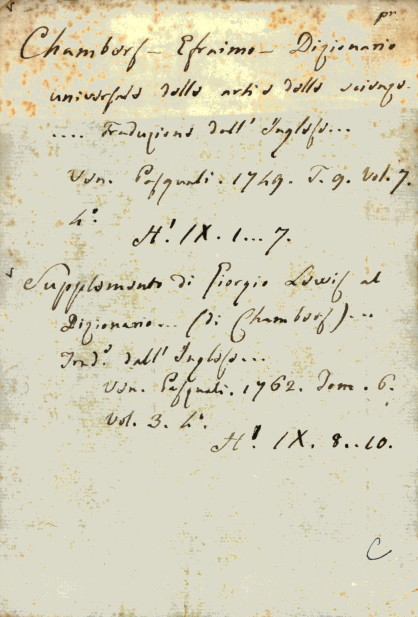 pr
Chambers - Efraimo - Dizionario
universale delle arti e delle scienze.
.... Traduzione dall' Inglese...
Ven. Pasquali. 1749. T. 9. Vol. 7
4.º
H! IX. 1...7.
Supplemento di Giorgio Lewis al
Dizionario... (di Chambers)...
Trad.e dall' Inglese...
Ven. Pasquali. 1762. Tom. 6.
Vol. 3. 4.º
H! IX. 8..10.
C